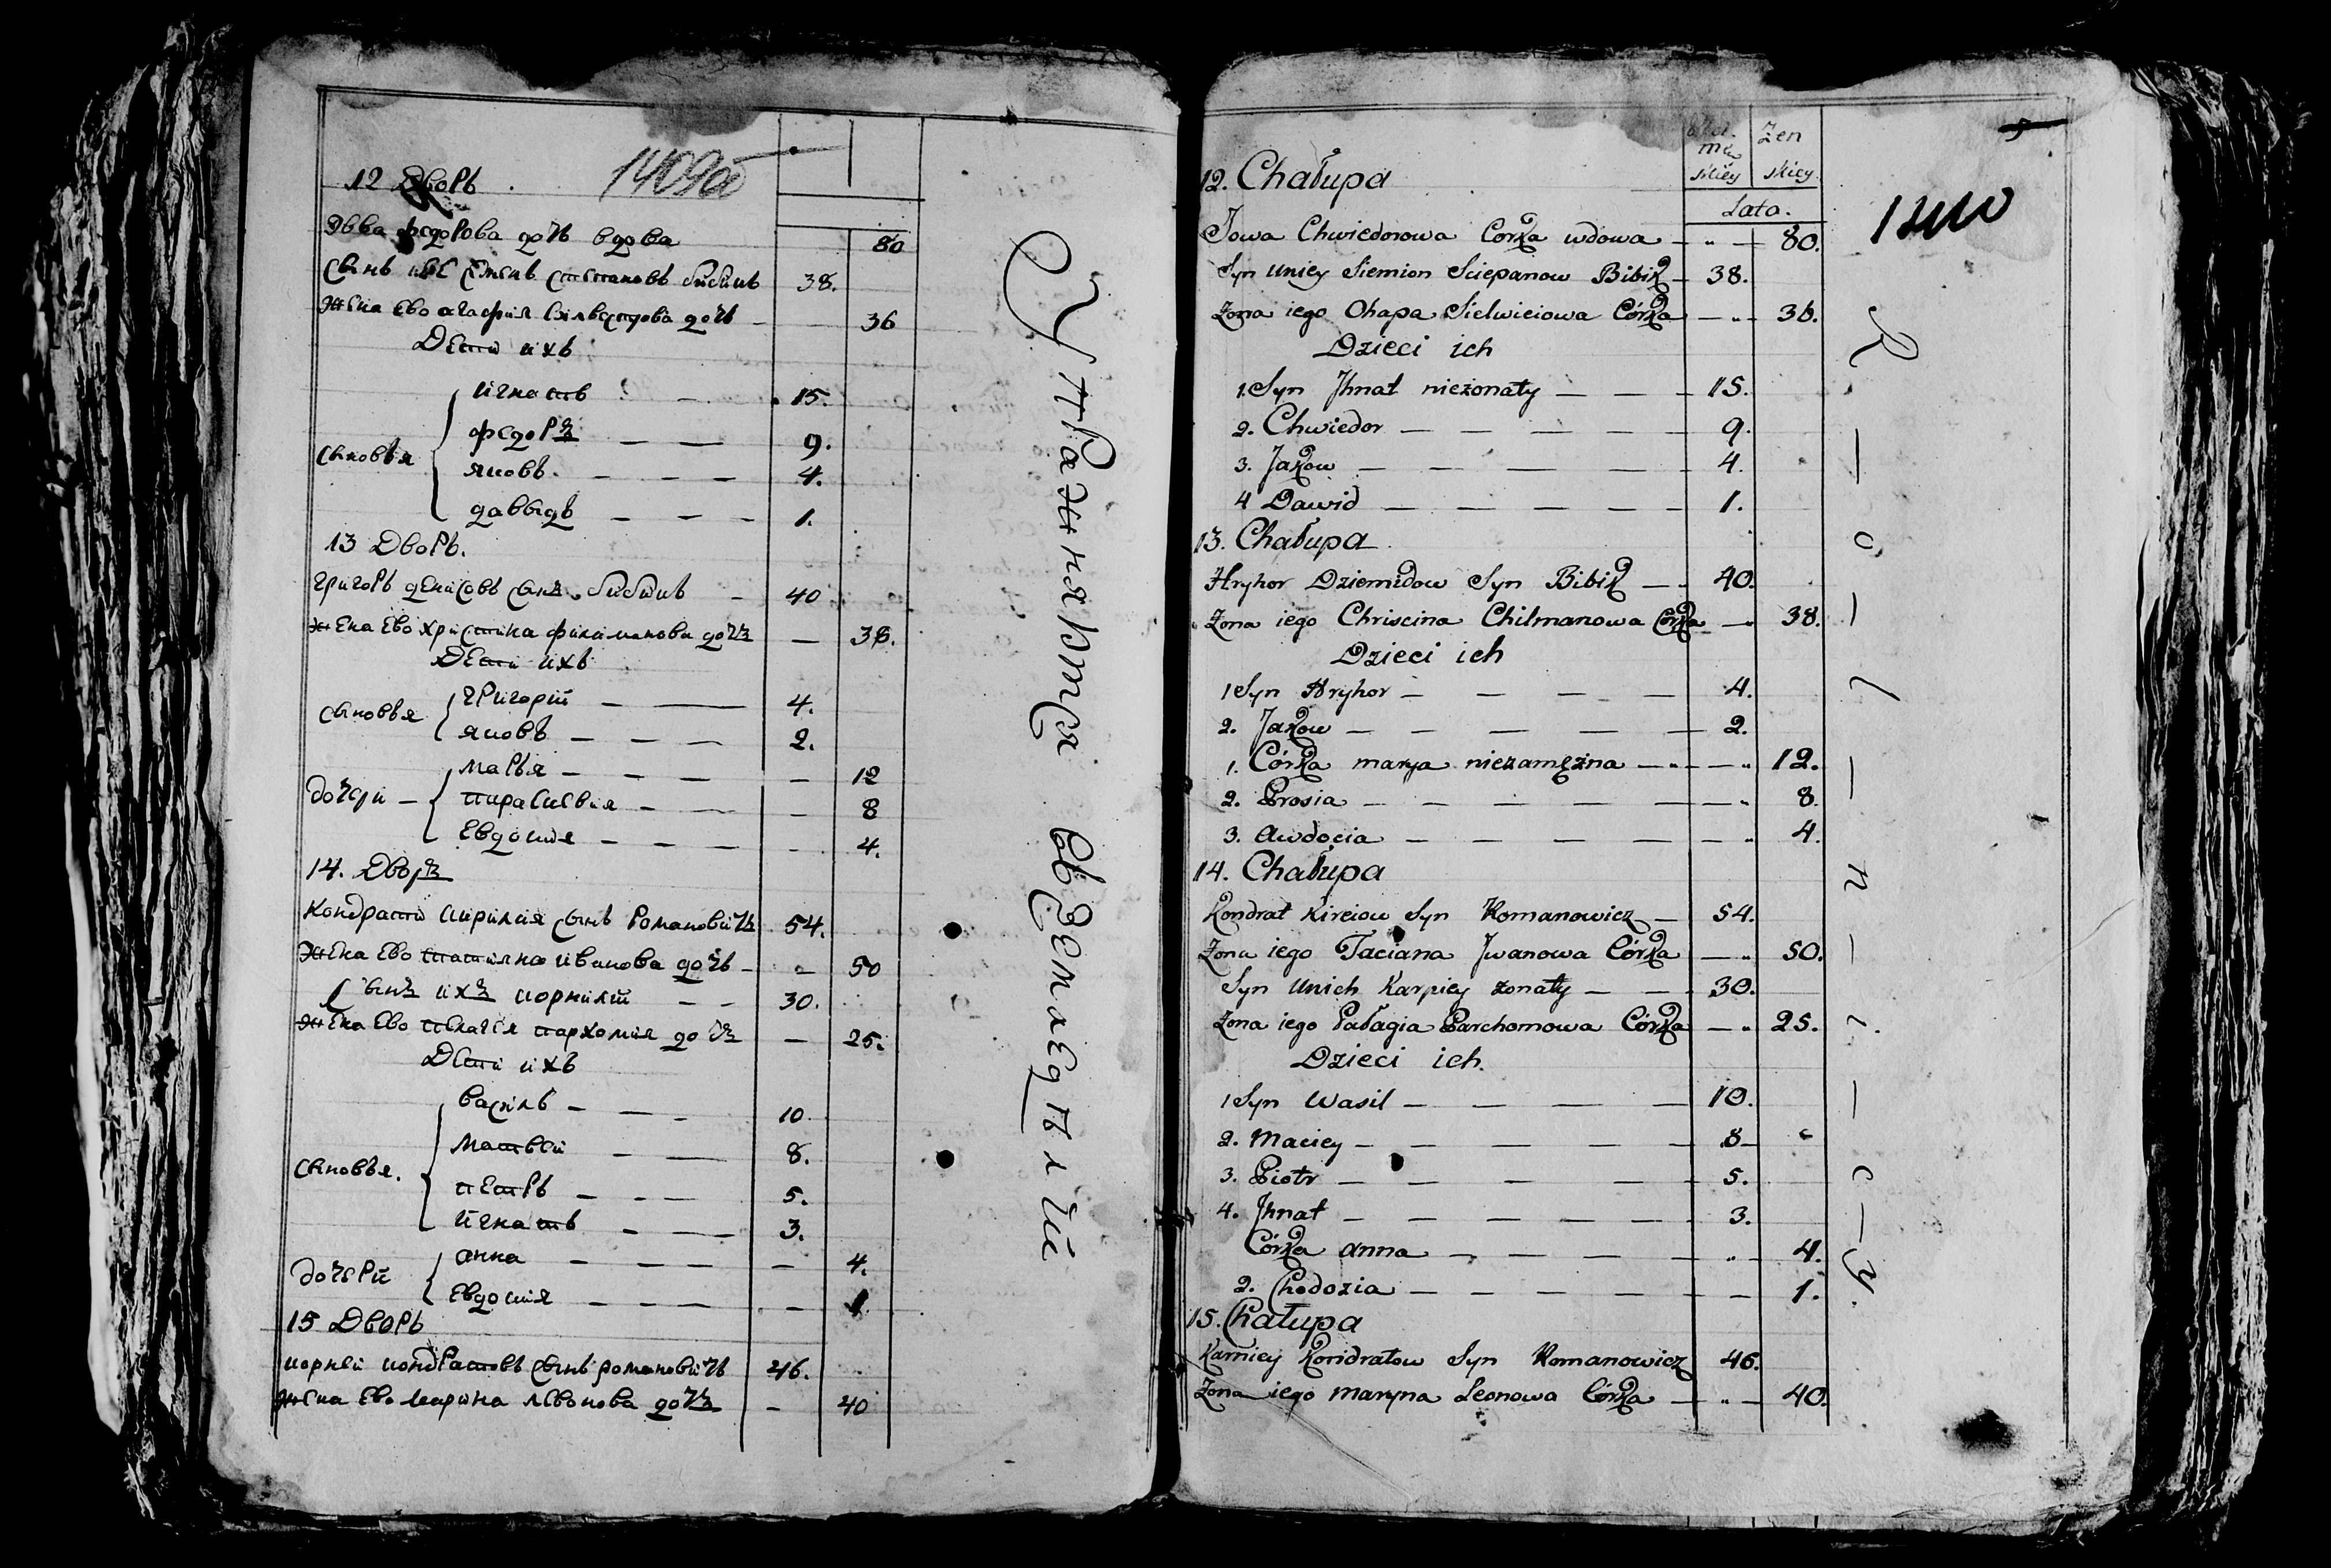 12 Дворъ
Эвва федорова дочь вдова 80
Сынъ ияе Семенъ Степановъ бибикъ 38.
Жена Ево агафия Сильвестрова дочь — 36
Дети ихъ
Сыновья
игнатъ — 15.
федоръ — — 9.
яковъ. — — — 4.
даввыдъ — — — 1.
13 Дворъ.
григоръ денисовъ сынъ бибикъ — 40
жена Ево христина филимонова дочъ — 38.
Дети ихъ
Сыновья
григорій — — 4.
яковъ — — — 2.
дочери —
марья — — — — 12
параскевия — — — 8
Евдокия — — — — 4.
14. Дворъ
Кондрати кирилия сынъ Романовичъ 54.
Жена Ево татияна иванова дочь — — 50
Сынъ ихъ корнилий — — 30.
жена Ево пелагея пархомия дочъ — 25.
Дети ихъ
Сыновья.
василь — — — 10.
матвей — — 8.
петръ — — — 5.
игнатъ — — 3.
дочери
анна — — — — 4.
Евдокия — — — — 1.
15 Дворъ
корней кондратовъ сынъ романовичъ 46.
жена Ево марина левонова дочъ — 40
Утражняютца въ земледѣлии
Męz. Zen
skiey skiey
Lata.
12. Chałupa
Jowa Chwiedorowa Corka wdowa — „ — 80.
Syn uniey Siemion Sciepanow Bibik — 38.
Zona iego Ohapa Sielwieiowa Córka — „ — 36.
Dzieci ich
1. Syn Jhnat nieżonaty — — — 15.
2. Chwiedor — — — — — 9.
3. Jakow — — — — — 4.
4 Dawid — — — — — 1.
13. Chałupa
Hryhor Dziemidow Syn Bibik — 40.
Zona iego Chriscina Chilmanowa Córka — „ 38.
Dzieci ich
1 Syn Hryhor — — — — 4.
2. Jakow — — — — — 2.
1. Córka marya niezamężna — „ — „ 12.
2. Prosia — — — — — — „ 8.
3. Awdocia — — — — — „ 4.
14. Chałupa
Kondrat Kirciow Syn Romanowicz — 54.
Zona iego Taciana Jwanowa Córka — „ 50.
Syn Unich Karpiey żonaty — — 30.
Zona iego Pałagia Parchomowa Córka — „ 25.
Dzieci ich.
1 Syn Wasil — — — — 10.
2. Maciey — — — — — 8
3. Piotr — — — — — 5.
4. Jhnat — — — — — 3.
Córka anna — — — — „ 4.
2. Chodozia — — — — — 1.
15. Chałupa
Karniey Kondratow Syn Romanowicz 46.
Zona iego maryna Leonowa Córka — „ — 40.
R — o — l — n — i. — c — y.